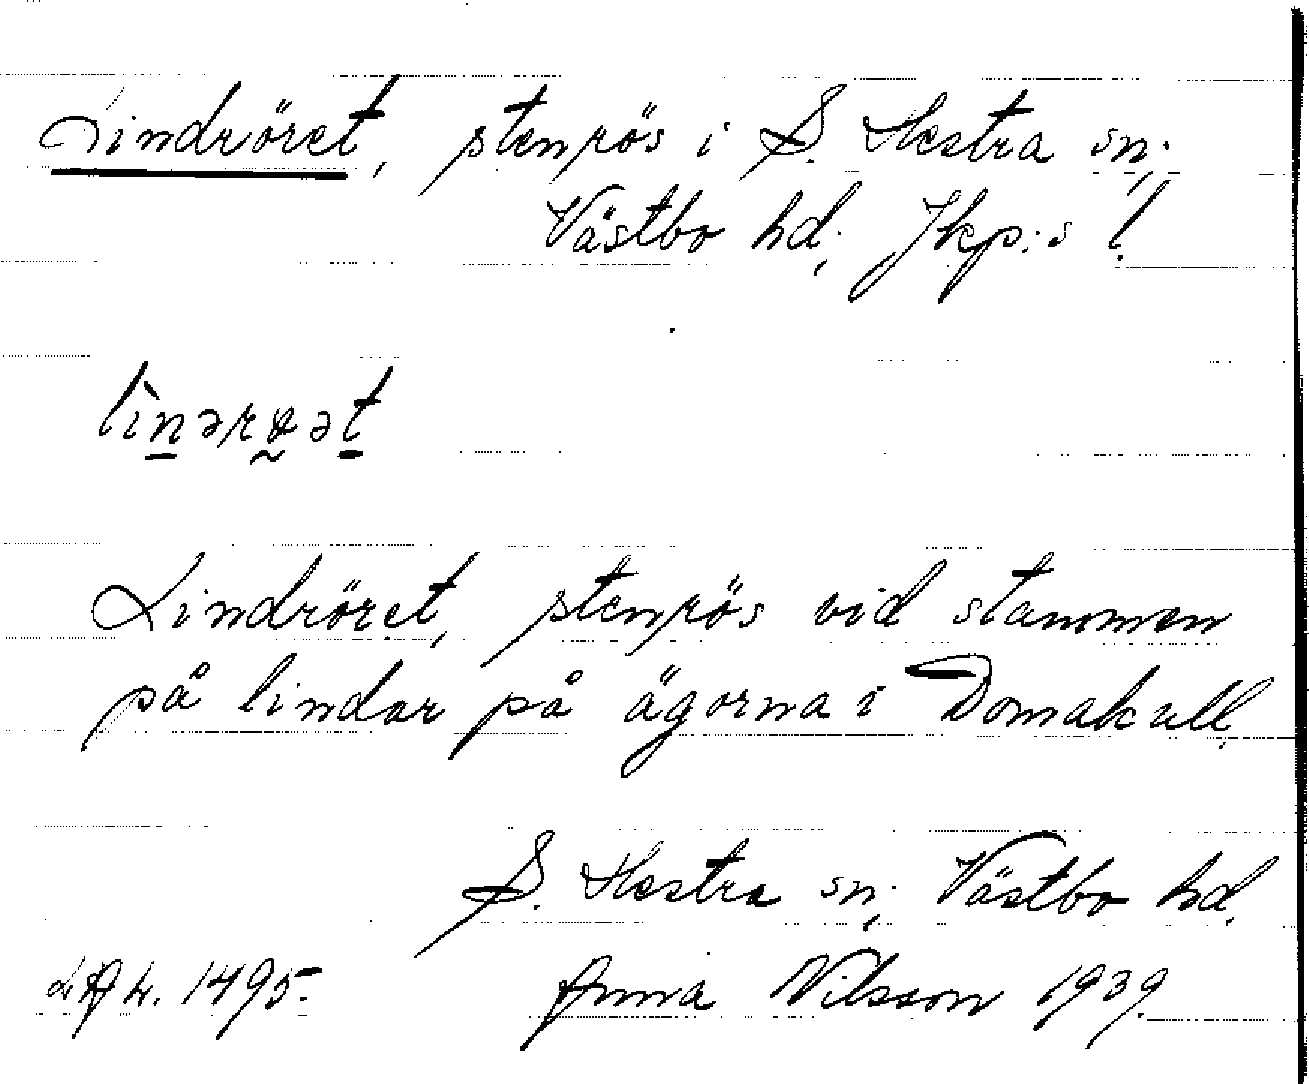 Lindröret, stenrös i S. Hestra sn;
Västbo hd; Jkp:s l.
lìnərət
Lindröret, stenrös vid stammen
på lindar på ägorna i Domakull.
S. Hestra sn; Västbo hd.
1495. Anna Nilsson 1939.